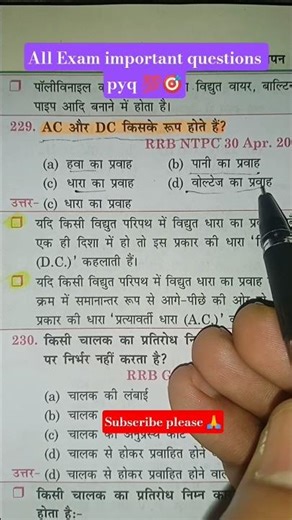 All Exam important questions
pyq 💯🎯
पॉलीविनाइल
विद्युत वायर,
पाइप आदि बनाने में होता है।
229. AC और DC किसके रूप होते हैं?
RRB NTPC 30 Apr.
(a) हवा का प्रवाह (b) पानी का प्रवाह
(c) धारा का प्रवाह (d) वोल्टेज का प्रवाह
उत्तर- (c) धारा का प्रवाह
यदि किसी विद्युत परिपथ में विद्युत धारा का
एक ही दिशा में हो तो इस प्रकार की धारा
(D.C.)' कहलाती हैं।
यदि किसी विद्युत परिपथ में विद्युत धारा का
क्रम में समानान्तर रूप से आगे-पीछे की ओर
प्रकार की धारा 'प्रत्यावर्ती धारा (A.C.)'
230. किसी चालक का प्रतिरोध
पर निर्भर नहीं करता है?
RRB
(a) चालक की लंबाई
(b) चालक
Subscribe please 🙏
(c) चालक का अनुप्रस्थ काट
(d) चालक से होकर प्रवाहित होने
उत्तर- (d) चालक से होकर प्रवाहित होने
किसी चालक का प्रतिरोध निम्न
होता है:-